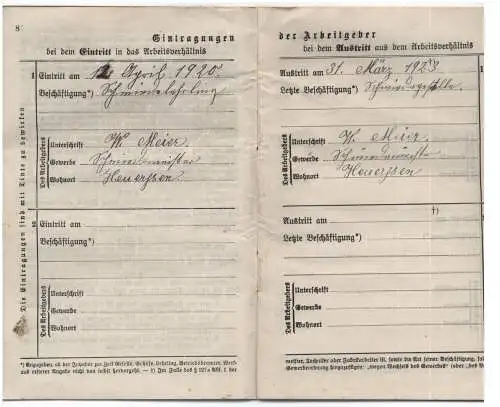 8
Eintragungen
bei dem Eintritt in das Arbeitsverhältnis
1 Eintritt am 1. April 1920
Beschäftigung*) Schmiedelehrling
Des Arbeitgebers
Unterschrift W. Meier
Gewerbe Schmiedemeister
Wohnort Heuerßen
2 Eintritt am
Beschäftigung*)
Des Arbeitgebers
Unterschrift
Gewerbe
Wohnort
Die Eintragungen sind mit Tinte zu bewirken
*) Anzugeben, ob der Inhaber zur Zeit Geselle, Gehilfe, Lehrling, Betriebsbeamter, Werk-
aus unserer Angabe nicht von selbst hervorgeht. — †) Im Falle des § 127 a Abs. 1 der
der Arbeitgeber
bei dem Austritt aus dem Arbeitsverhältnis
Austritt am 31. März 1923
Letzte Beschäftigung*) Schmiedegeselle
Des Arbeitgebers
Unterschrift W. Meier
Gewerbe Schmiedemeister
Wohnort Heuerssen
†)
Austritt am
Letzte Beschäftigung*)
Des Arbeitgebers
Unterschrift
Gewerbe
Wohnort
meister, Techniker oder Fabrikarbeiter ist, sowie die Art seiner Beschäftigung,
Gewerbeordnung hinzuzufügen: „wegen Wechsels des Gewerbes" oder